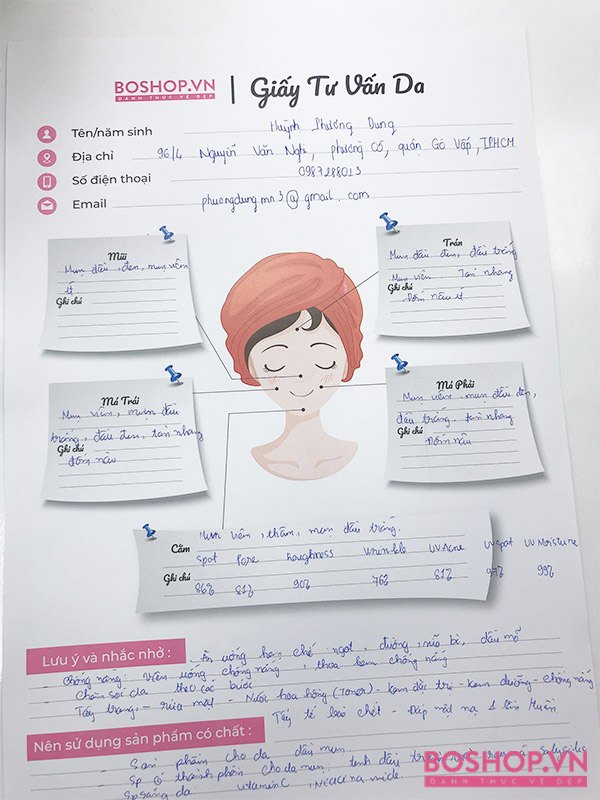 BOSHOP.VN | Giấy Tư Vấn Da
ĐÁNH THỨC VẺ ĐẸP
Tên/năm sinh Huỳnh Phương Dung
Địa chỉ 96/4 Nguyễn Văn Nghi, phường 05, quận Gò Vấp, TPHCM
Số điện thoại 0987288013
Email phuongdung.mn3@gmail.com
Mũi
Mụn đầu đen, mụn viêm
ít.
Ghi chú
Trán
Mụn đầu đen, đầu trắng
Mụn viêm. Tàn nhang
Đốm nâu ít
Ghi chú
Má Trái
Mụn viêm, mụn đầu
trắng, đầu đen, tàn nhang
Ghi chú
đốm nâu
Má Phải
Mụn viêm, mụn đầu đen,
đầu trắng, tàn nhang
Ghi chú
Đốm nâu
Cằm
Mụn viêm, thâm, mụn đầu trắng.
Spot Pore Roughness Wrinkle UV Acne UV Spot UV Moisture
Ghi chú
86% 81% 90% 76% 81% 97% 99%
Lưu ý và nhắc nhở :
Ăn uống hạn chế ngọt, đường, sữa bò, dầu mỡ
Chống nắng: viên uống chống nắng, thoa kem chống nắng
Chăm sóc da theo các bước
Tẩy trang - rửa mặt - Nước hoa hồng (Toner) - kem đặc trị - kem dưỡng - chống nắng
Tẩy tế bào chết - Đắp mặt nạ 1 lần tuần
Nên sử dụng sản phẩm có chất :
Sản phẩm cho da dầu mụn
Sp có thành phần cho da mụn, tinh dầu tràm
Sp sáng da vitamin C, Niacinamide.
BOSHOP.VN
ĐÁNH THỨC VẺ ĐẸP